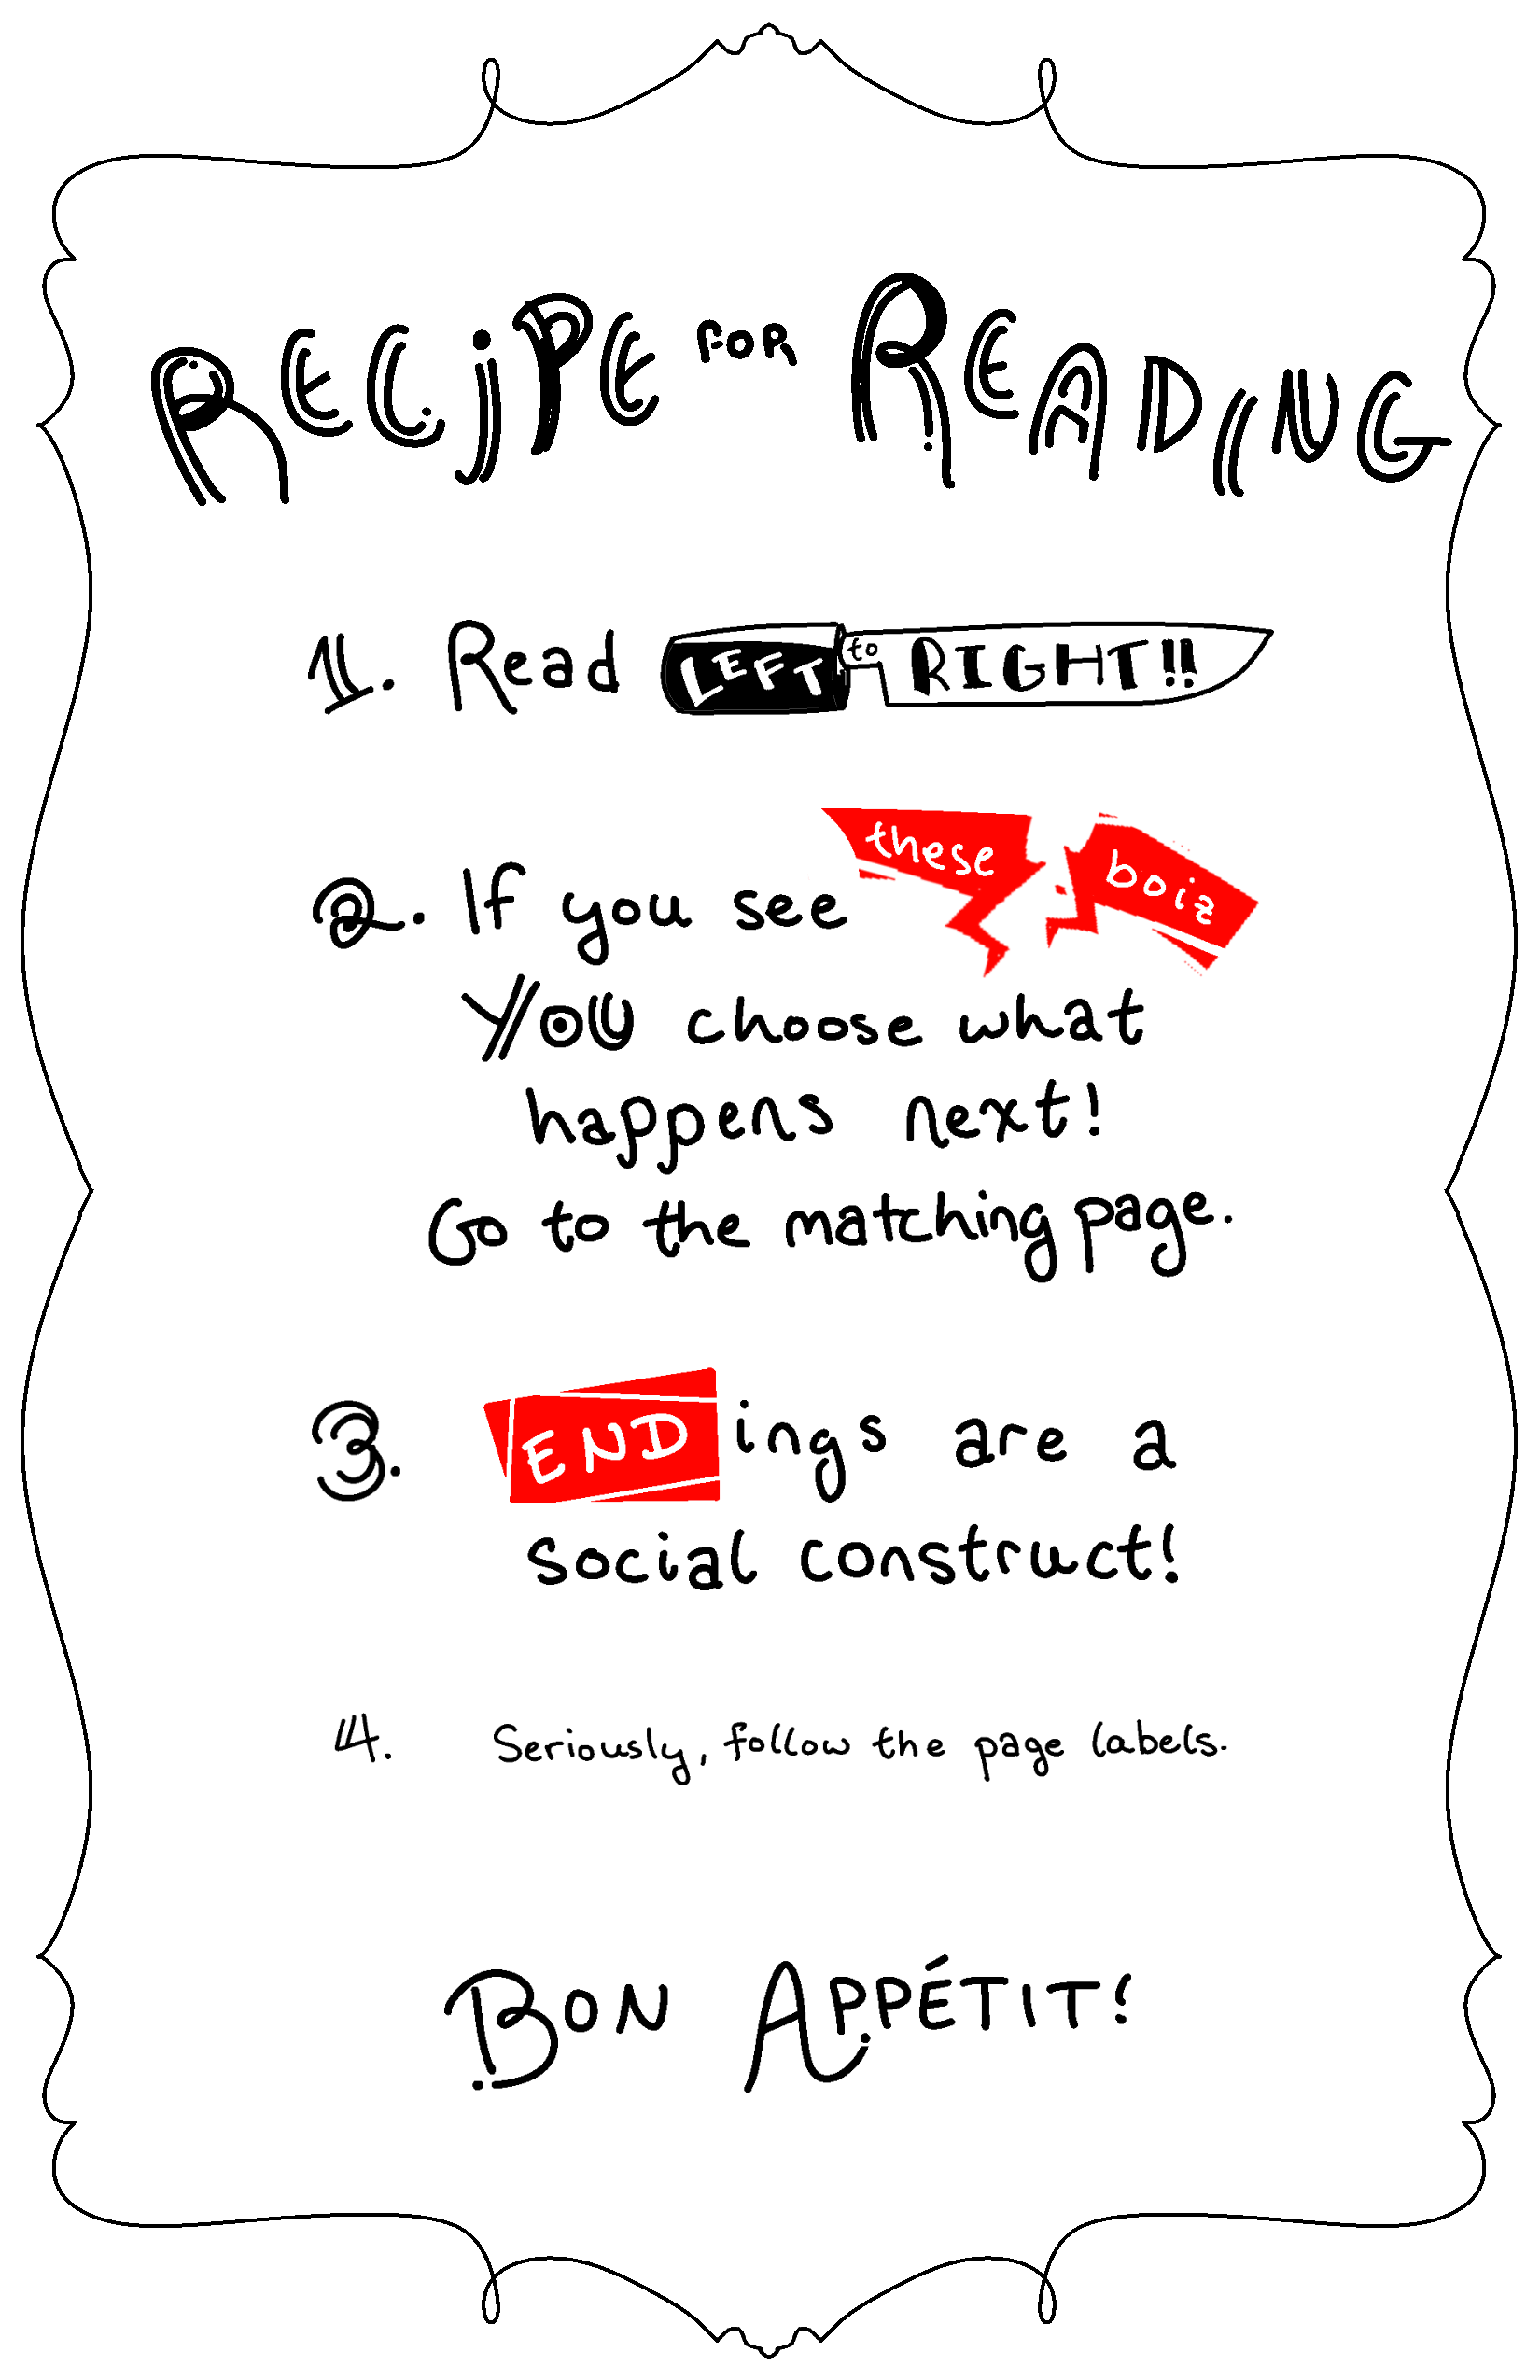 RECIPE FOR READING
1. Read LEFT to RIGHT!!
2. If you see these boiz
YOU choose what
happens next!
Go to the matching page.
3. ENDings are a
social construct!
4. Seriously, follow the page labels.
BON APPÉTIT!